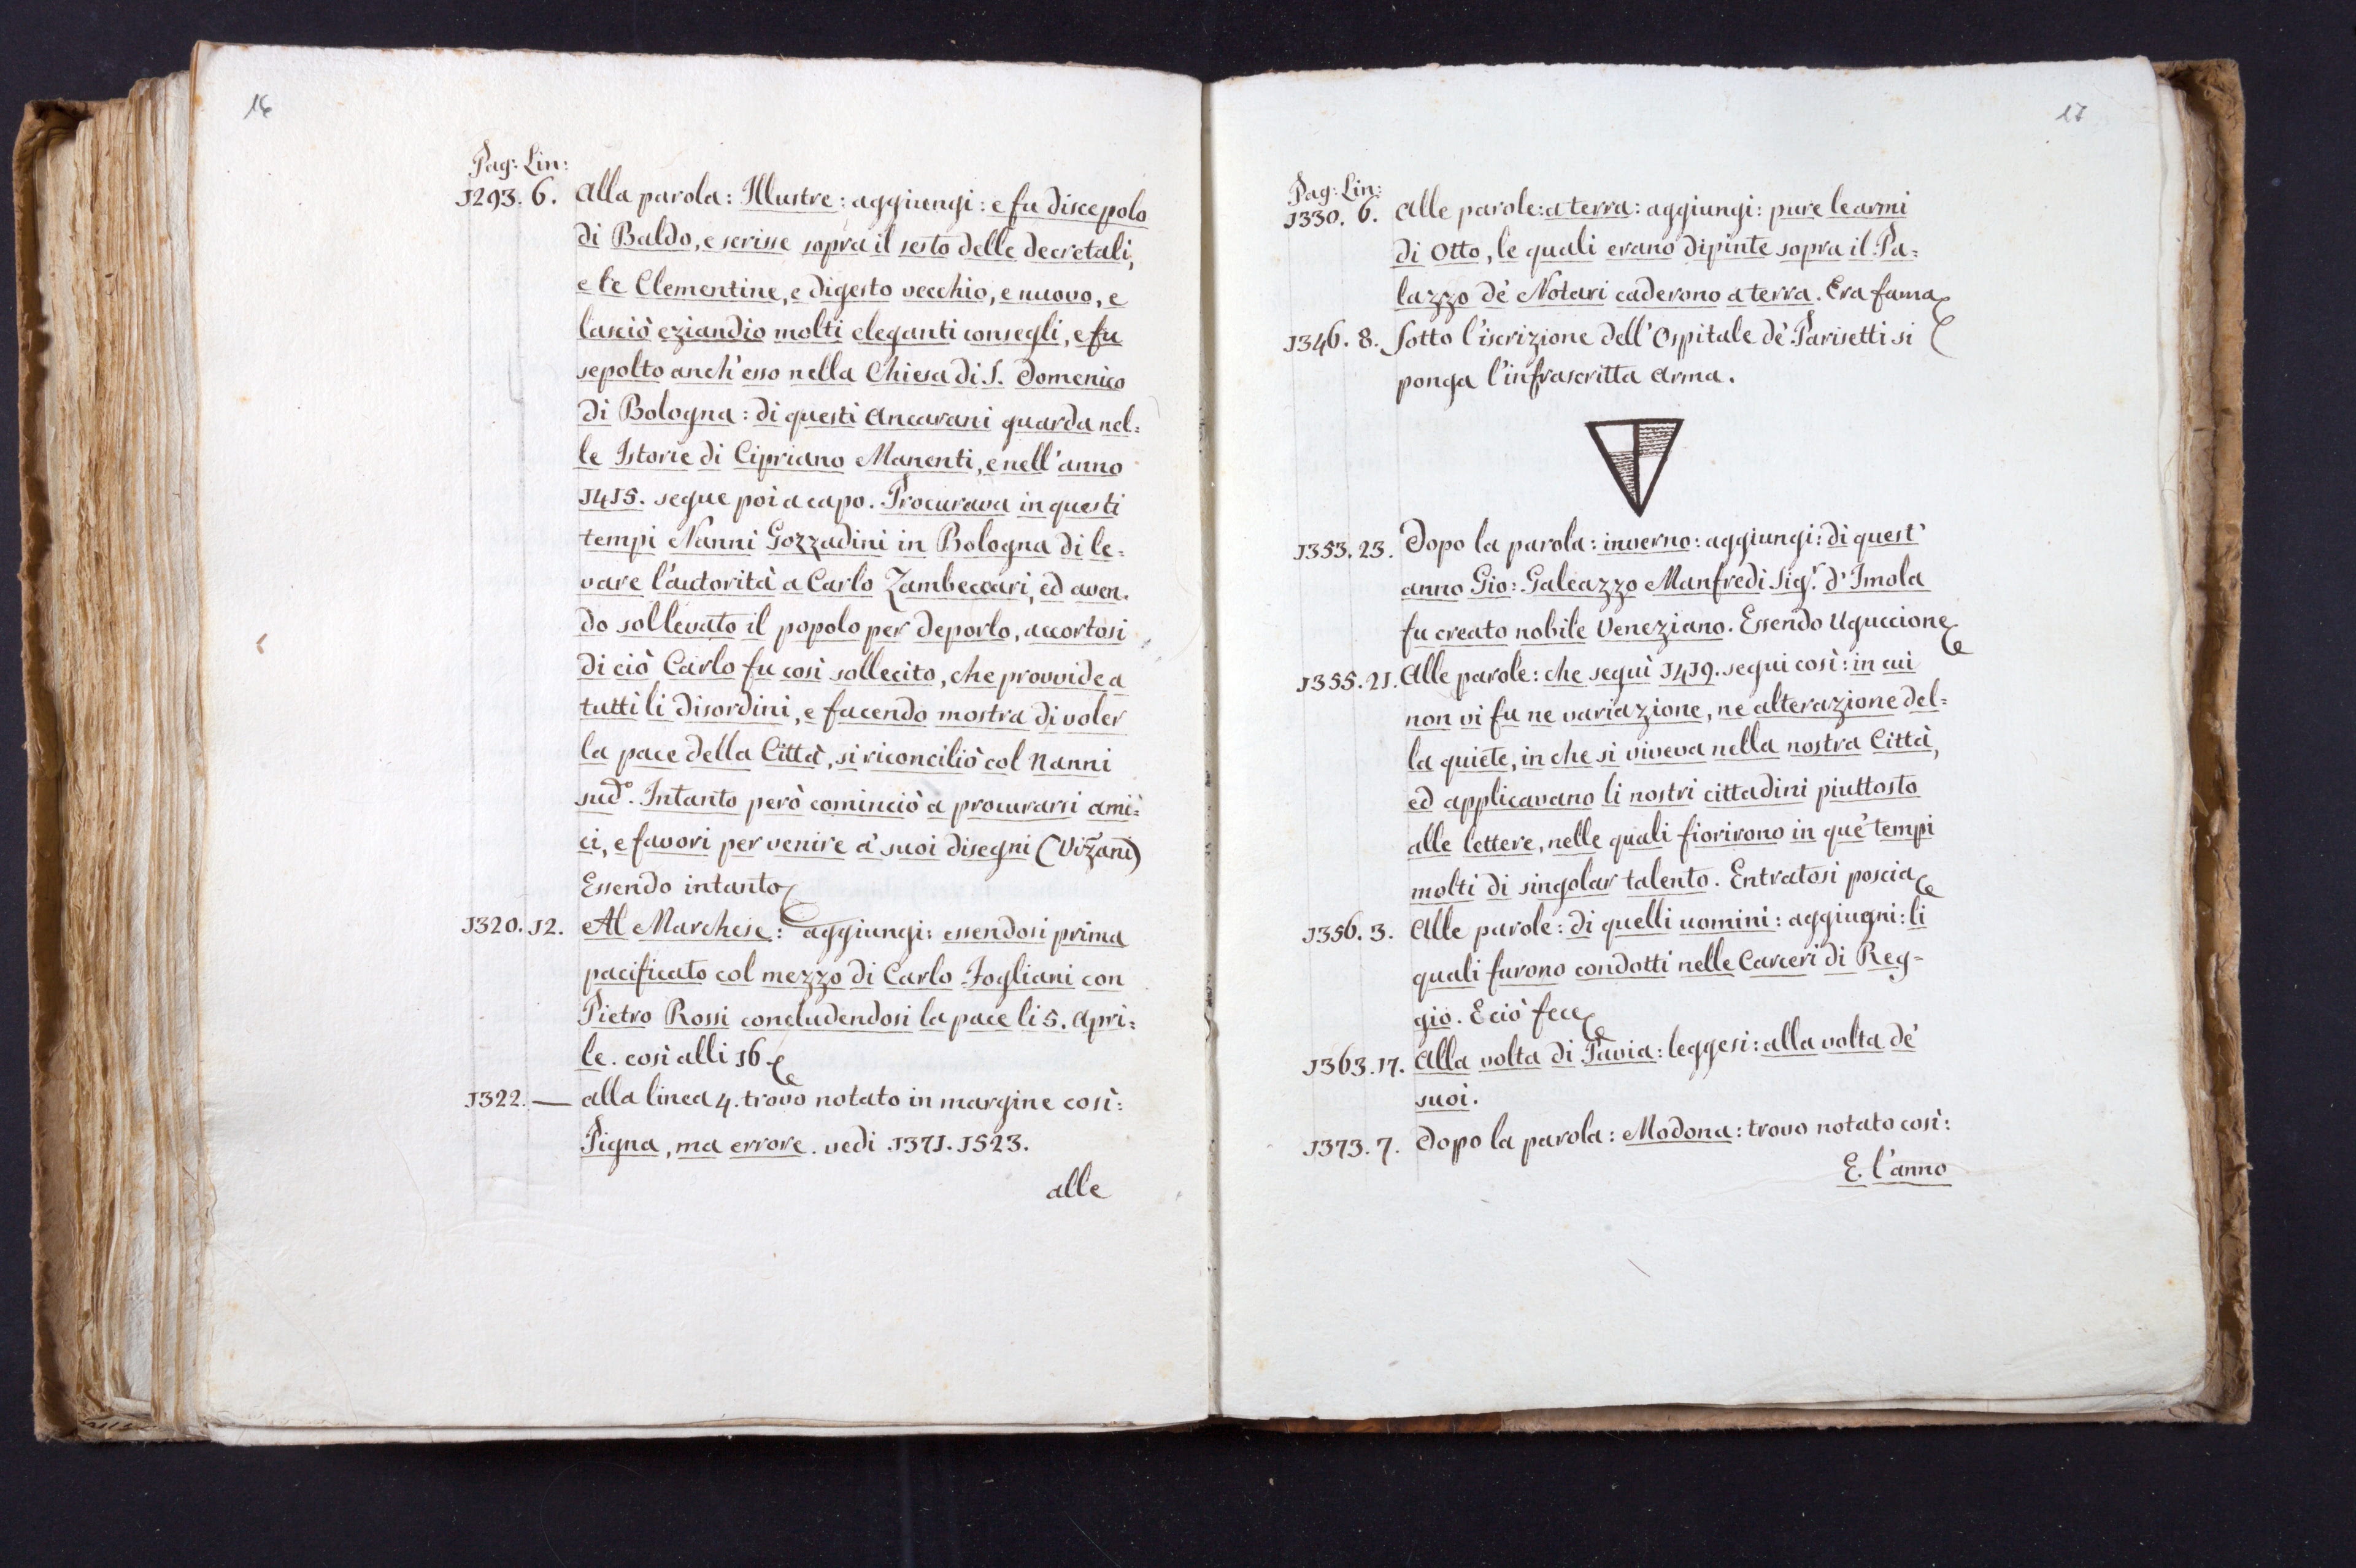 16
Pag: Lin:
1293. 6. Alla parola: Illustre: aggiungi: e fu discepolo
di Baldo, e scrisse sopra il sesto delle decretali,
e le Clementine, e digesto vecchio, e nuovo, e
lasciò eziandio molti eleganti consegli, e fu
sepolto anch'esso nella Chiesa di S. Domenico
di Bologna: di questi Ancarani guarda nel=
le Istorie di Cipriano Manenti, e nell'anno
1415. segue poi a capo. Procurava in questi
tempi Nanni Gozzadini in Bologna di le=
vare l'autorità a Carlo Zambeccari, ed aven=
do sollevato il popolo per deporlo, accortosi
di ciò Carlo fu così sollecito, che provvide a
tutti li disordini, e facendo mostra di voler
la pace della Città, si riconciliò col Nanni
sud.º Intanto però cominciò a procurarsi ami=
ci, e favori per venire a' suoi disegni (Vizani)
Essendo intanto
1320. 12. Al Marchese: aggiungi: essendosi prima
pacificato col mezzo di Carlo Fogliani con
Pietro Rossi concludendosi la pace li 5. Apri=
le. così alli 16
1322. — alla linea 4. trovo notato in margine così:
Pigna, ma errore. vedi 1371. 1523.
alle
17
Pag: Lin:
1330. 6. Alle parole: a terra: aggiungi: pure le armi
di Otto, le quali erano dipinte sopra il Pa=
lazzo de' Notari caderono a terra. Era fama
1346. 8. Sotto l'iscrizione dell'Ospitale de' Parisetti si
ponga l'infrascritta Arma.
1353. 23. Dopo la parola: inverno: aggiungi: di quest'
anno Gio: Galeazzo Manfredi Sig.r d'Imola
fu creato nobile Veneziano. Essendo Uguccione
1355. 21. Alle parole: che seguì 1419. segui così: in cui
non vi fu ne variazione, ne alterazione del=
la quiete, in che si viveva nella nostra Città,
ed applicavano li nostri cittadini piuttosto
alle lettere, nelle quali fiorirono in que' tempi
molti di singolar talento. Entratosi poscia
1356. 3. Alle parole: di quelli uomini: aggiugni: li
quali furono condotti nelle Carceri di Reg=
gio. E ciò fece
1363. 17. Alla volta di Pavia: leggesi: alla volta de'
suoi.
1373. 7. Dopo la parola: Modona: trovo notato così:
E. l'anno